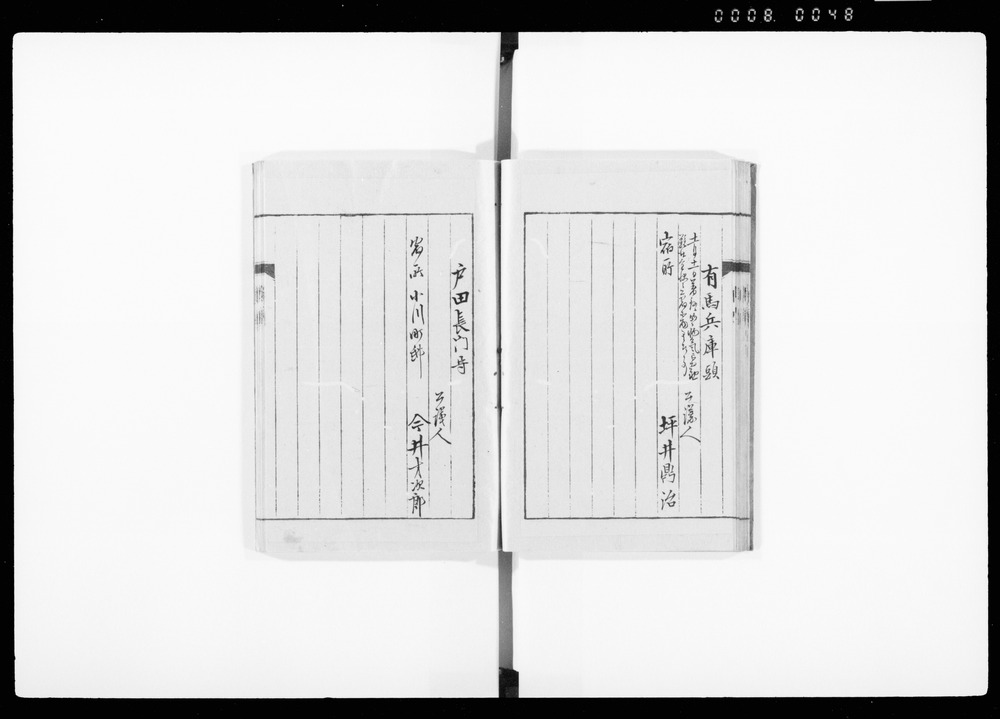 0008. 0048
有馬兵庫頭
公議人
宿所
坪井鼎治
戸田長門守
公議人
宿所 小川町邸
今井才次郎